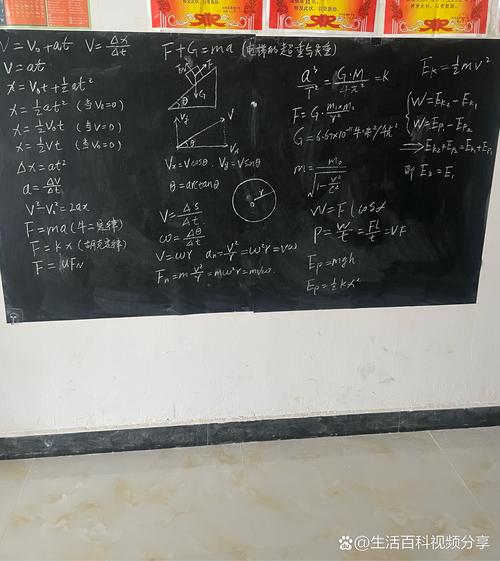 V = V₀ + at  V = Δx/Δt
V = at
x = V₀t + ½at²
x = ½at² (当V₀=0)
x = ½V₀t (当V=0)
x = ½Vt (当V₀=0)
Δx = at²
a = ΔV/Δt
V² - V₀² = 2ax
F = ma (牛二定律)
F = kx (胡克定律)
F = μF_N
F + G = ma (电梯的超重与失重)
G
θ
V_y V
θ V_x
V_x = Vcosθ, V_y = Vsinθ
θ = arctanθ
r
V = Δs/Δt
ω = Δθ/Δt
V = ωr  a_n = V²/r = ω²r = Vω
F_n = m V²/r = mω²r = mVω
a³/T² = G·M/4π² = K
F = G· m₁×m₂/r²
G = 6.67×10⁻¹¹ 牛·米²/千克²
m = m₀/√(1 - V²/C²)
W = F l cosα
P = W/t = FL/t = VF
E_p = mgh
E_p = ½kx²
E_k = ½mV²
W = E_k2 - E_k1
W = E_p1 - E_p2
⇒ E_k2 + E_p2 = E_k1 + E_p1
即 E₂ = E₁
@生活百科视频分享